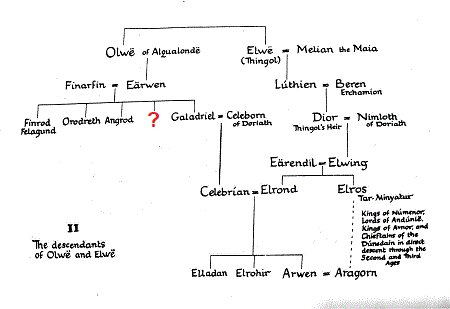 Olwë of Alqualondë
Elwë = Melian the Maia
(Thingol)
Finarfin = Eärwen
Lúthien = Beren
Erchamion
Finrod
Felagund
Orodreth
Angrod
?
Galadriel = Celeborn
of Doriath
Dior = Nimloth
Thingol's Heir
of Doriath
Eärendil = Elwing
Celebrían = Elrond
Elros
Tar-Minyatur
Kings of Númenor,
Lords of Andúnië,
Kings of Arnor, and
Chieftains of the
Dúnedain in direct
descent through the
Second and Third
Ages
II
The descendants
of Olwë and Elwë
Elladan
Elrohir
Arwen = Aragorn